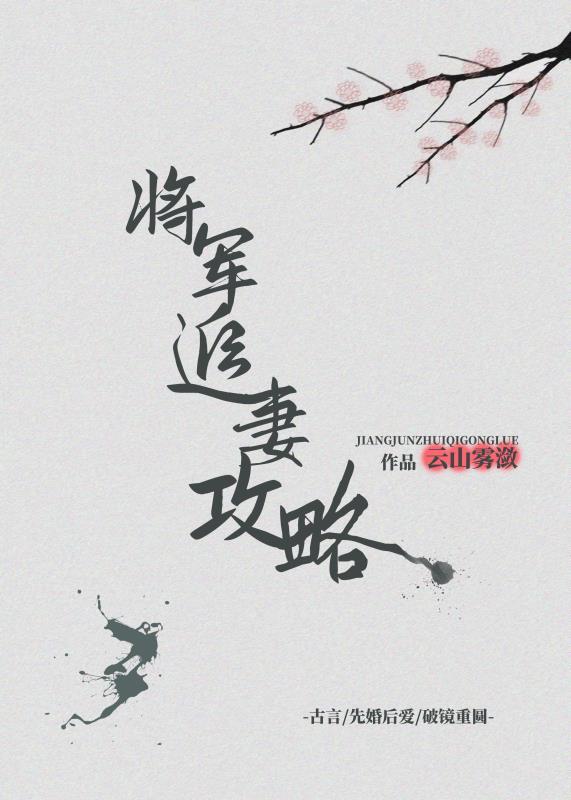 将军追妻攻略
JIANGJUNZHUIQIGONGLUE
作品 云山雾潋
-古言/先婚后爱/破镜重圆-